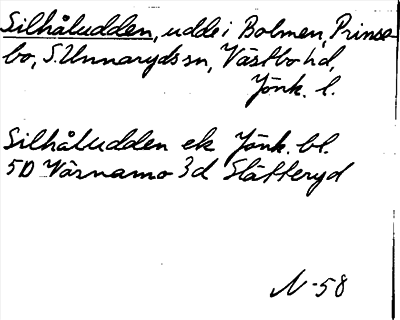 Silhåludden, udde i Bolmen, Prinsa-
bo, S. Unnaryds sn, Västbo hd,
Jönk. l.
Silhåludden ek Jönk. bl.
5D Värnamo 3d Slätteryd
N-58